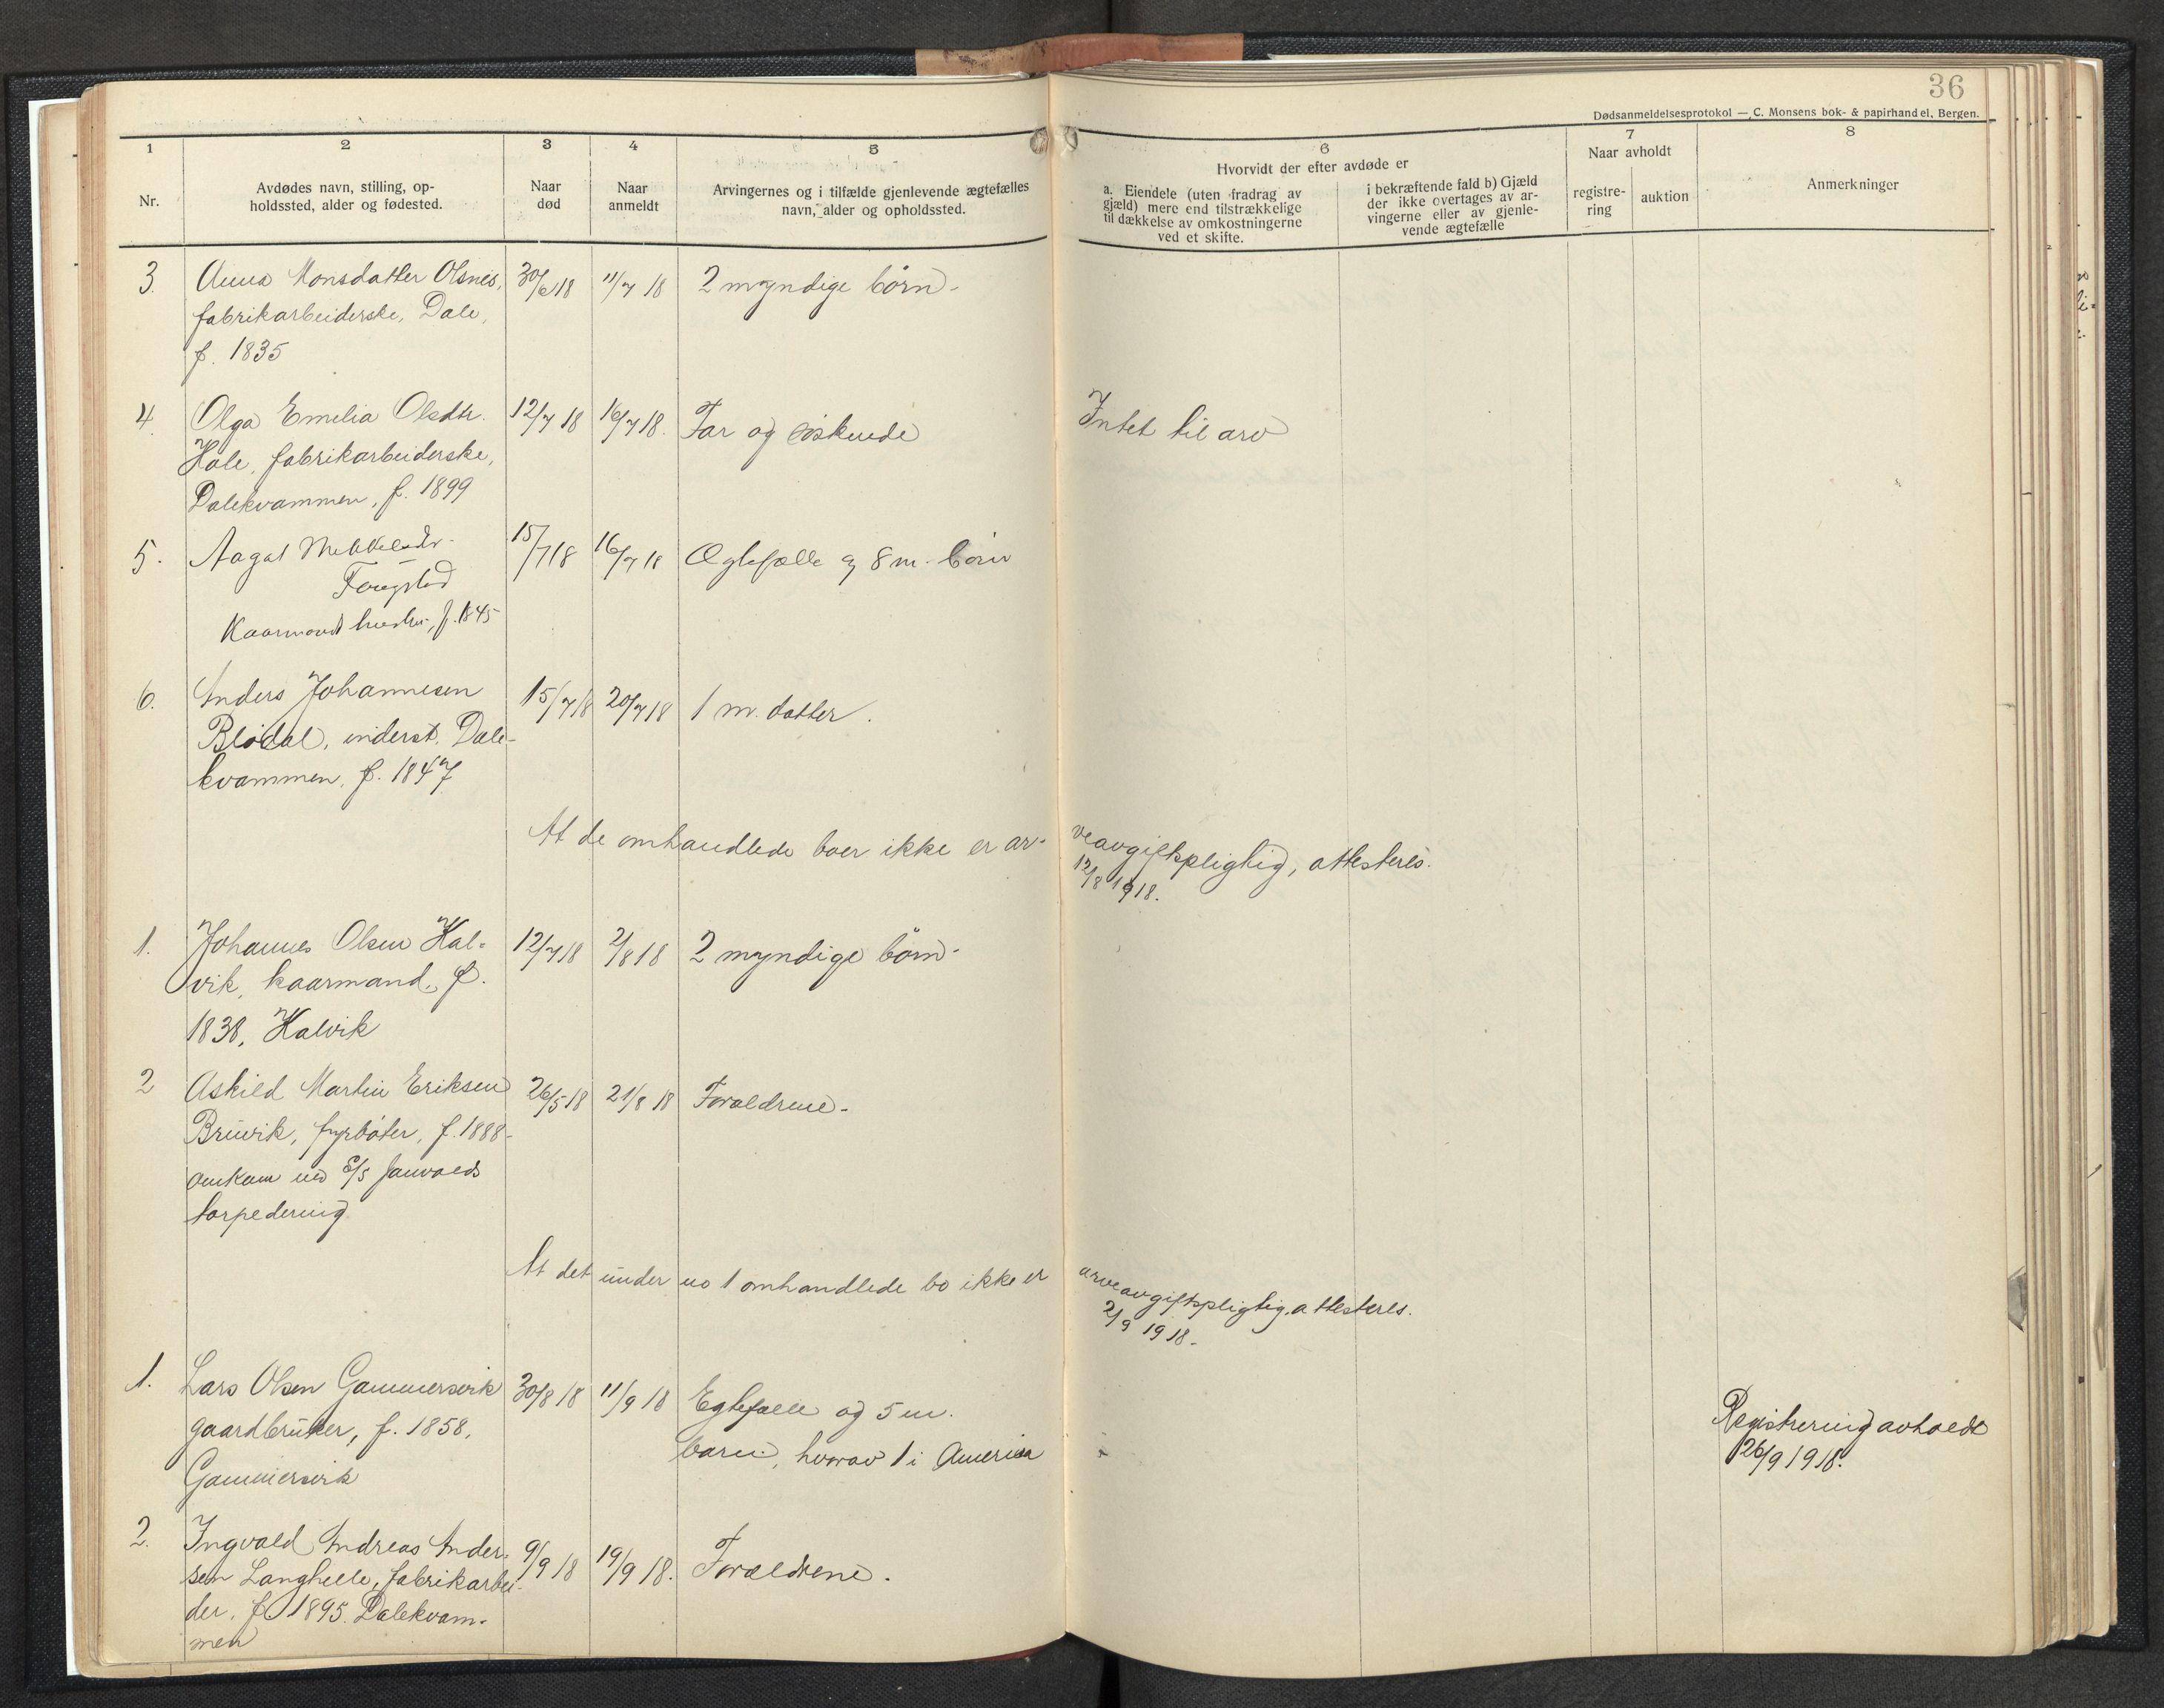 36
Dødsanmeldelsesprotokol — C. Monsens bok- & papirhandel, Bergen.
1 2 3 4 5 6 7 8
Nr.
Avdødes navn, stilling, op-
holdssted, alder og fødested.
Naar
død
Naar
anmeldt
Arvingernes og i tilfælde gjenlevende ægtefælles
navn, alder og opholdssted.
Hvorvidt der efter avdøde er
a. Eiendele (uten fradrag av
gjæld) mere end tilstrækkelige
til dækkelse av omkostningerne
ved et skifte.
i bekræftende fald b) Gjæld
der ikke overtages av ar-
vingerne eller av gjenle-
vende ægtefælle
Naar avholdt
registre-
ring
auktion
Anmerkninger
3. Anna Monsdatter Olsnes, 30/6 18 11/7 18 2 myndige börn -
fabrikarbeiderske, Dale,
f. 1835
4. Olga Emelia Olsdtr. 12/7 18 16/7 18. Far og söskende Intet til arv
Hole, fabrikarbeiderske,
Dalekvammen, f. 1899
5. Aagat Mikkelsdr. 15/7 18 16/7 18 Ægtefælle og 8 m. börn
Fougstad
Kaarmands hustru, f. 1845
6. Anders Johannesen 15/7 18 20/7 18 1 m. datter.
Blödal, inderst, Dale-
kvammen, f. 1847
At de omhandlede boer ikke er ar- veavgiftspligtig, attesteres.
12/8 1918.
1. Johannes Olsen Kal- 12/7 18 2/8 18 2 myndige börn -
vik, kaarmand, f.
1838, Kalvik
2 Askild Martin Eriksen 26/5 18 21/8 18 Foraldrene -
Bruvik, fyrböter, f. 1888 -
omkom ved S/S Janvolds
torpedering
At det under no 1 omhandlede bo ikke er arveavgiftspligtig, attesteres.
2/9 1918 -
1. Lars Olsen Gammersvik 30/8 18 11/9 18 Egtefælle og 5 m. Registrering avholdt
gaardbruker, f. 1858, barn, hvorav 1 i America 26/9 1918.
Gammersvik
2. Ingvald Andreas Ander- 9/9 18 19/9 18. Forældrene.
sen Langhelle, fabrikarbei-
der, f. 1895. Dalekvam-
men